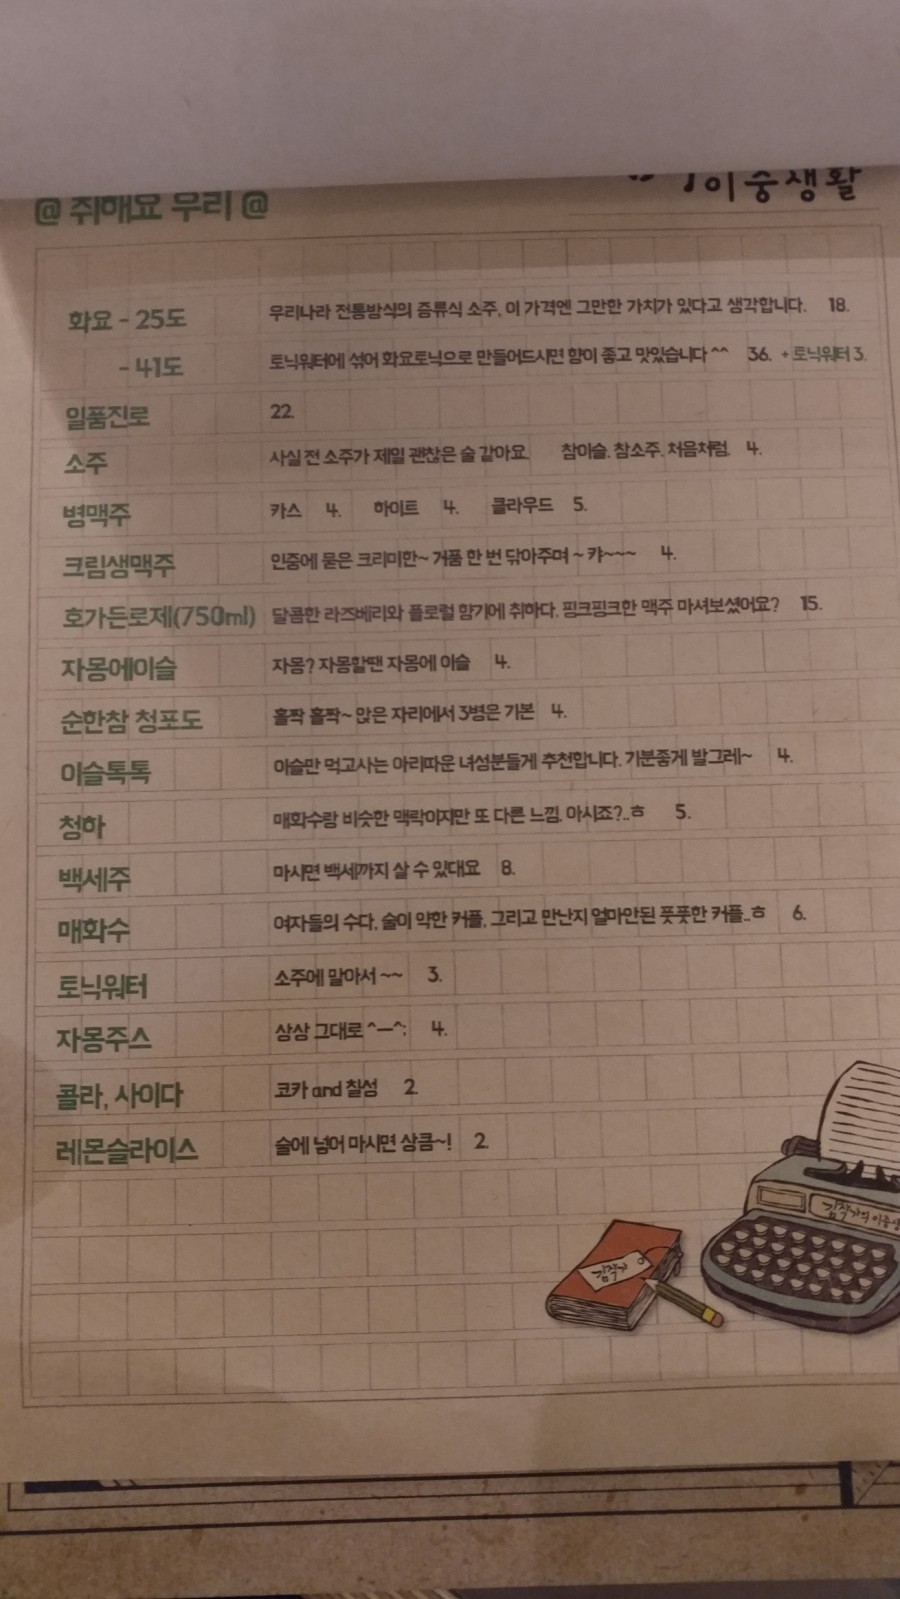 @ 취해요 우리 @
이중생활
화요 - 25도 우리나라 전통방식의 증류식 소주, 이 가격엔 그만한 가치가 있다고 생각합니다. 18.
- 41도 토닉워터에 섞어 화요토닉으로 만들어드시면 향이 좋고 맛있습니다 ^^ 36. + 토닉워터 3.
일품진로 22.
소주 사실 전 소주가 제일 괜찮은 술 같아요. 참이슬. 참소주. 처음처럼. 4.
병맥주 카스 4. 하이트 4. 클라우드 5.
크림생맥주 인중에 묻은 크리미한~ 거품 한 번 닦아주며 ~ 캬~~~ 4.
호가든로제(750ml) 달콤한 라즈베리와 플로럴 향기에 취하다. 핑크핑크한 맥주 마셔보셨어요? 15.
자몽에이슬 자몽? 자몽할땐 자몽에 이슬 4.
순한참 청포도 홀짝 홀짝~ 앉은 자리에서 3병은 기본 4.
이슬톡톡 이슬만 먹고사는 아리따운 녀성분들게 추천합니다. 기분좋게 발그레~ 4.
청하 매화수랑 비슷한 맥락이지만 또 다른 느낌. 아시죠?..ㅎ 5.
백세주 마시면 백세까지 살 수 있대요 8.
매화수 여자들의 수다, 술이 약한 커플, 그리고 만난지 얼마안된 풋풋한 커플..ㅎ 6.
토닉워터 소주에 말아서 ~~ 3.
자몽주스 상상 그대로 ^ㅡ^; 4.
콜라, 사이다 코카 and 칠성 2.
레몬슬라이스 술에 넣어 마시면 상큼~! 2.
김작가의 이중생
김작가